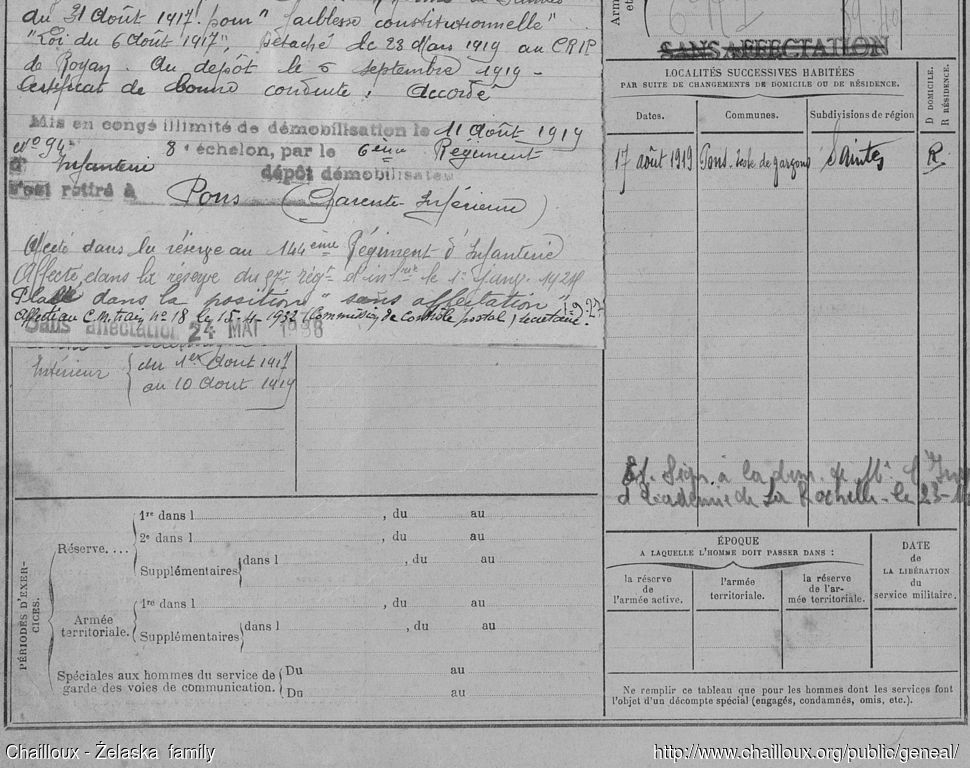 du 31 Août 1917. pour "faiblesse constitutionnelle"
"Loi du 6 Août 1917", Détaché le 28 Mars 1919 au C.R.I.P.
de Royan. Au dépôt le 6 septembre 1919 -
Certificat de bonne conduite : Accordé
Mis en congé illimité de démobilisation le 11 Août 1919
n° 94 8e échelon, par le 6ème Régiment
d'Infanterie dépôt démobilisateur
s'est retiré à Pons (Charente-Inférieure)
Affecté dans la réserve au 144ème Régiment d'Infanterie
Affecté dans la réserve du régt d'infrie le 1er janv. 1924
Placé dans la position "sans affectation"
Affecté au C.M. train n° 18 le 15-4-1932 (Commission de contrôle postal) secrétaire.
Sans affectation 24 MAI 1938
Intérieur
du 1er Aout 1917
au 10 Aout 1919
PÉRIODES D'EXERCICES.
Réserve. ...
1re dans l , du au
2e dans l , du au
Supplémentaires dans l , du au
Armée territoriale.
1re dans l , du au
Supplémentaires dans l , du au
Spéciales aux hommes du service de
garde des voies de communication.
Du au
Du au
SANS AFFECTATION
LOCALITÉS SUCCESSIVES HABITÉES
PAR SUITE DE CHANGEMENTS DE DOMICILE OU DE RÉSIDENCE.
Dates. Communes. Subdivisions de région
D DOMICILE.
R RÉSIDENCE.
17 août 1919 Pons. école de garçons Saintes R.
à la de Mr l'
d'Académie de La Rochelle le 23-
ÉPOQUE
A LAQUELLE L'HOMME DOIT PASSER DANS :
la réserve
de
l'armée active.
l'armée
territoriale.
la réserve
de l'ar-
mée territoriale.
DATE
de
LA LIBÉRATION
du
service militaire.
Ne remplir ce tableau que pour les hommes dont les services font
l'objet d'un décompte spécial (engagés, condamnés, omis, etc.).
Chailloux - Żelaska family
http://www.chailloux.org/public/geneal/